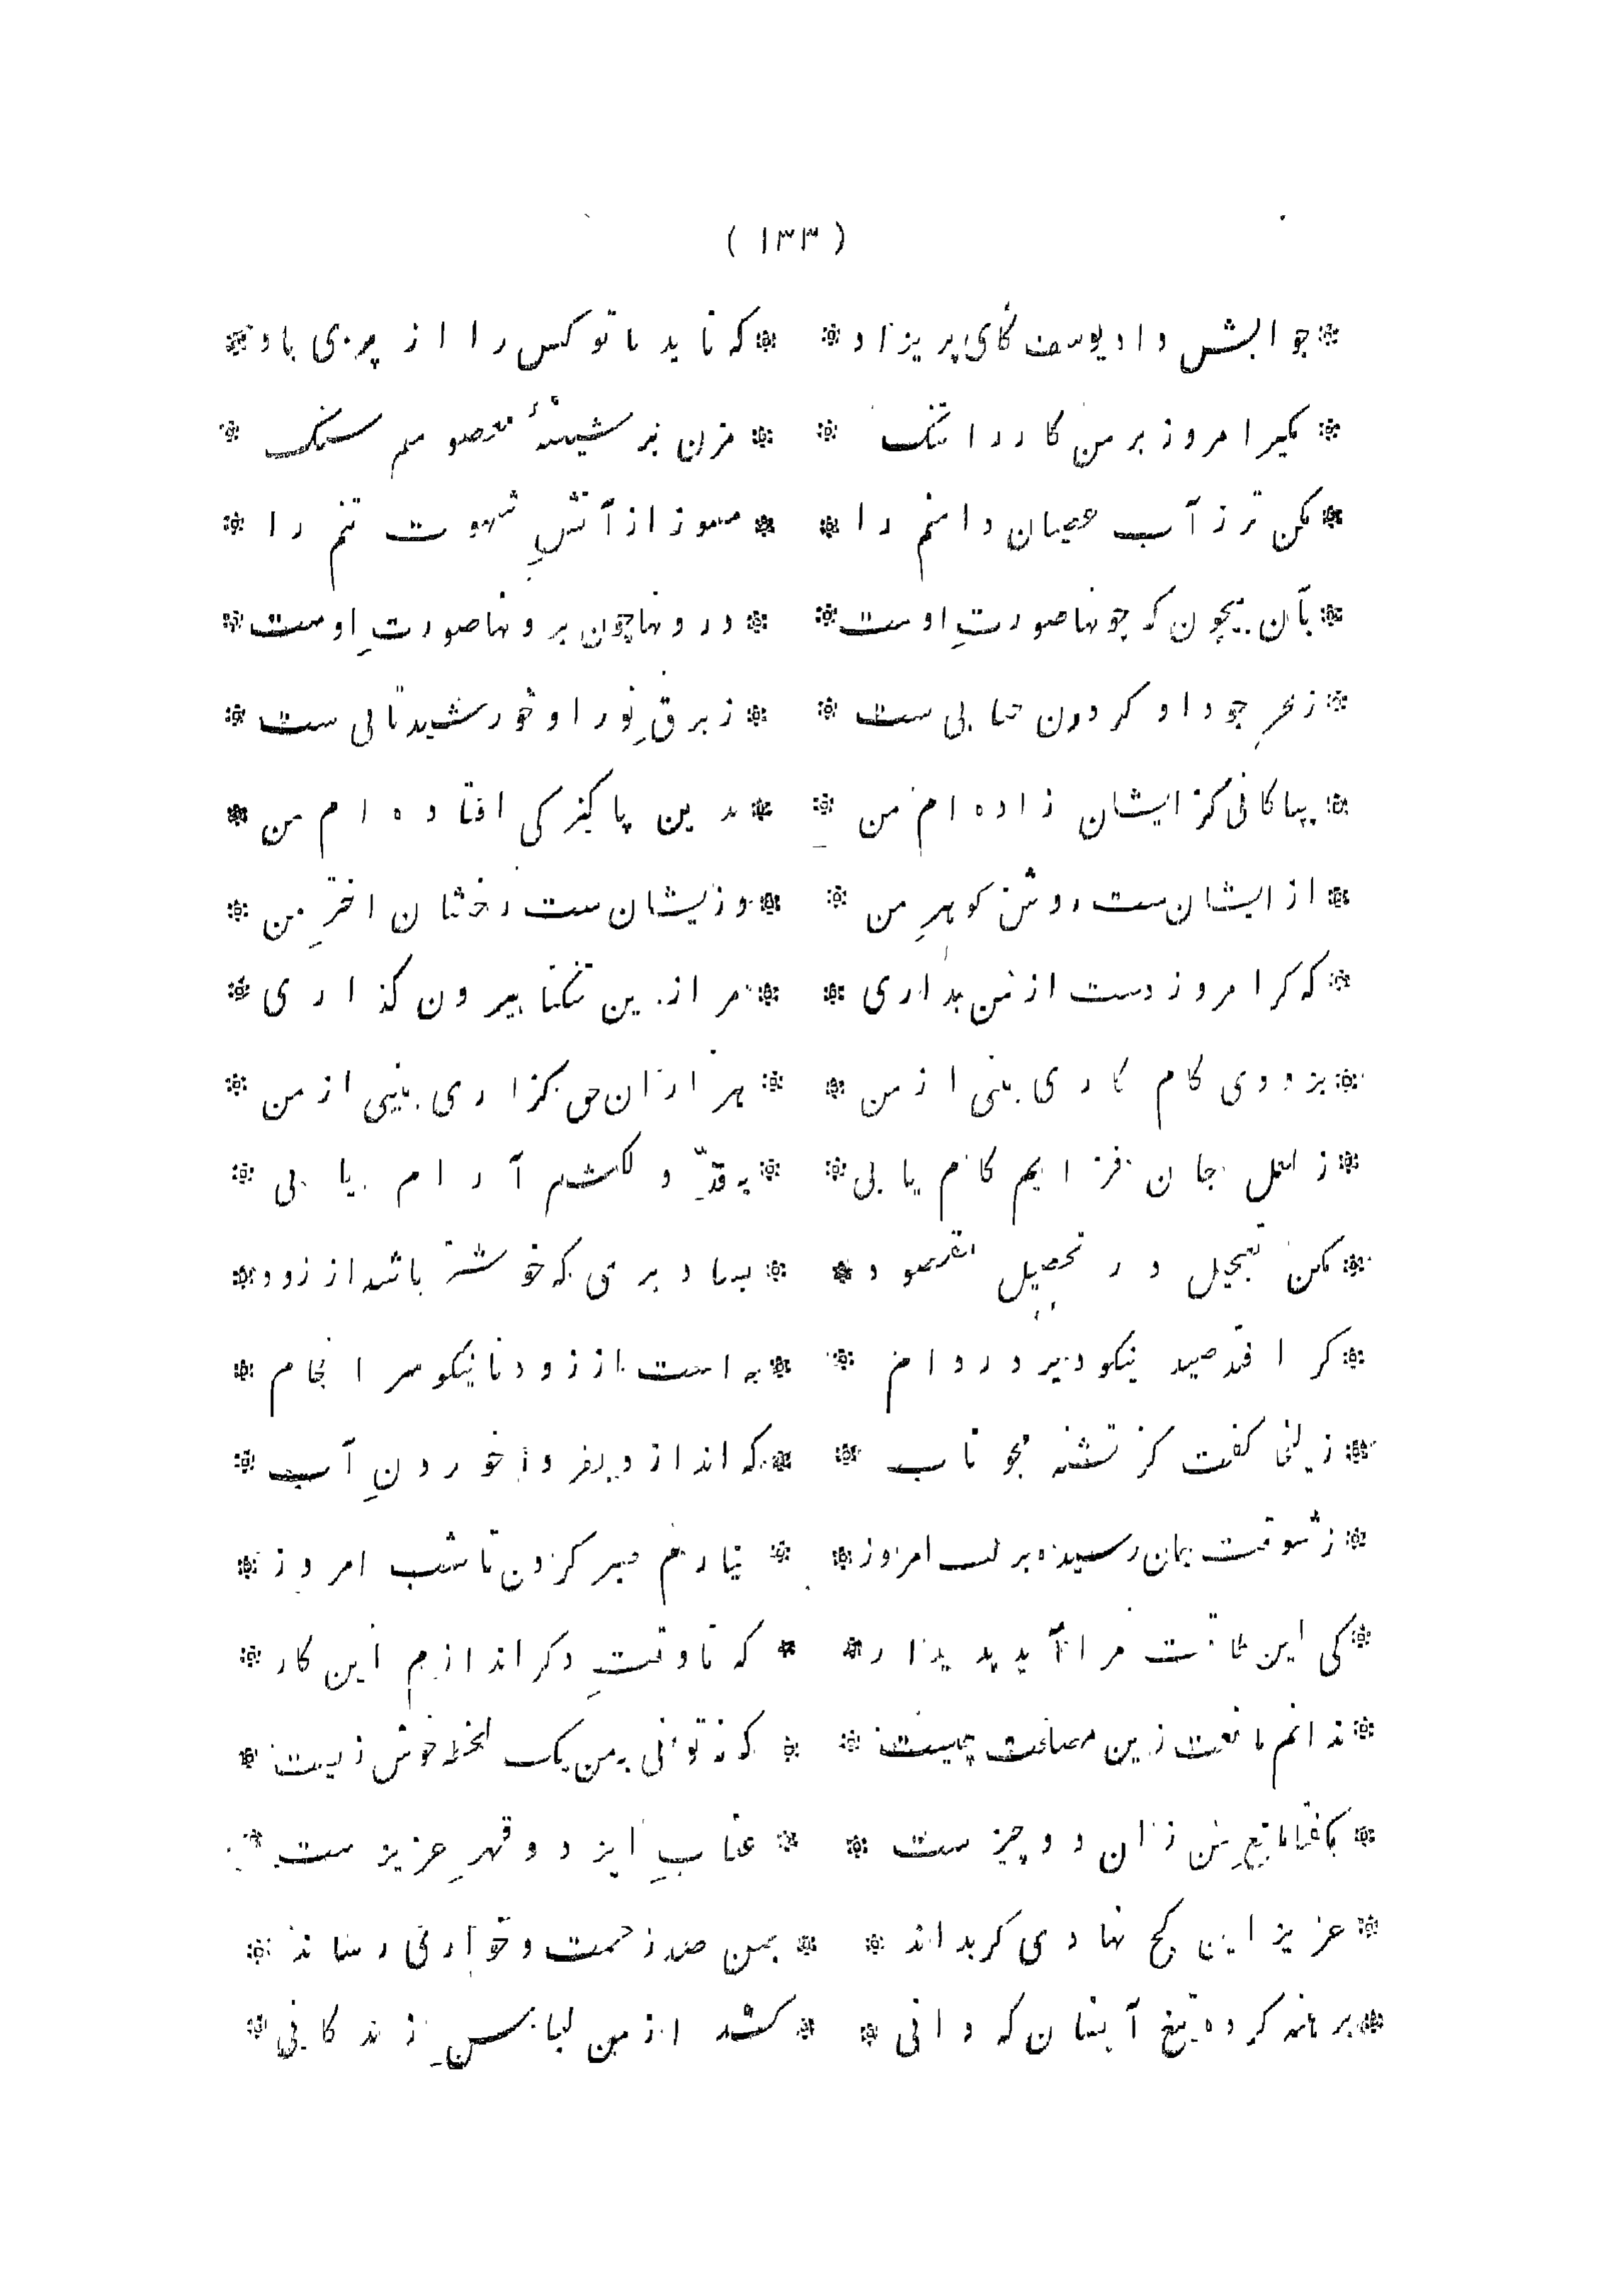 ( ۱۳۳ )
* جوابش داد یوسف کای پریزاد * * که ناید با تو کس را از پری یاد *
* مکیر امروز بر من کار را تنک * * مزن بر شیشهٔ معصومیم سنک *
* مکن تر ز آب عصیان دامنم را * * مسوز از آتشِ شهوت تنم را *
* بآن بیچون که چونها صورتِ اوست * * درونها چون برونها صورتِ اوست *
* ز بحرِ جود او کردون حبابی ست * * ز برقِ نور او خورشید تابی ست *
* بپاکانی کز ایشان زاده ام من * * بدین پاکیزکی افتاده ام من *
* از ایشان ست روشن کوهرِ من * * وزیشان ست رخشان اخترِ من *
* که کر امروز دست از من بداری * * مرا زین تنکنا بیرون کذاری *
* بزودی کام کاری بینی از من * * هزاران حق کزاری بینی از من *
* ز لعل جان فزایم کام یابی * * به قدِّ دلکشم آرام یابی *
* مکن تعجیل در تحصیلِ مقصود * * بسا دیری که خوشتر باشد از زود *
* کر افتد صید نیکو دیر در دام * * به است از زود نا نیکو سر انجام *
* زلیخا کفت کز تشنه مجو تاب * * که اندازد بفردا خوردنِ آب *
* ز شوقت جان رسیده بر لب امروز * * نیارم صبر کردن تا شب امروز *
* کی این طاقت مرا آید پدیدار * * که تا وقتِ دکر اندازم این کار *
* ندانم مانعت زین مصلحت چیست * * که نتوانی به من یک لحظه خوش زیست *
* بکفتا مانعِ من زان دو چیز ست * * عتابِ ایزد و قهرِ عزیز ست *
* عزیز این کج نهادی کر بداند * * بمن صد زحمت و خواری رساند *
* برهنه کرده تیغ آنسان که دانی * * کشد از من لباسِ زندکانی *